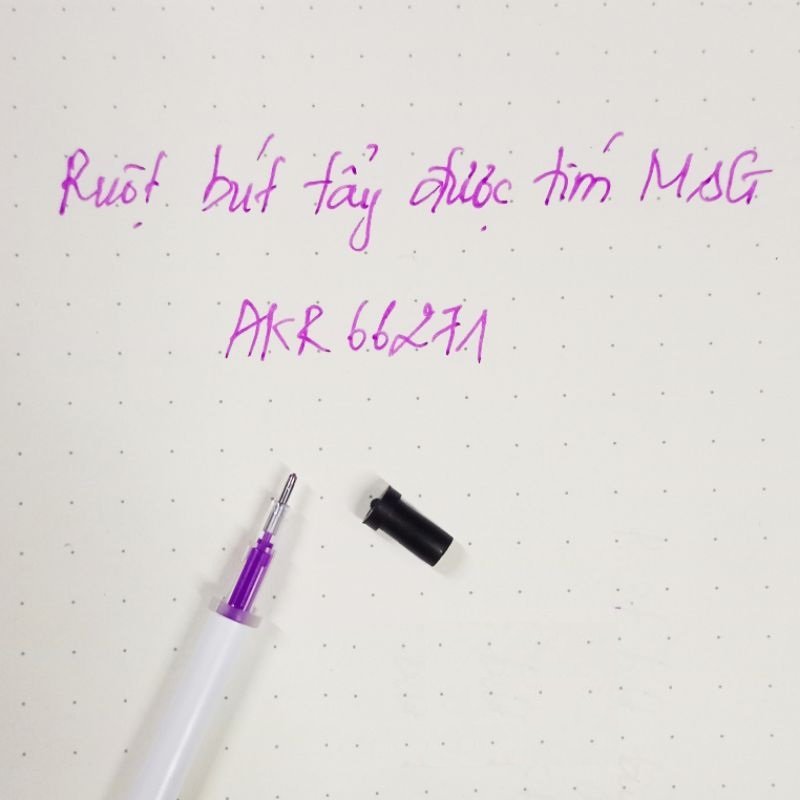 Ruột bút tẩy được tím M&G
AKR 66271